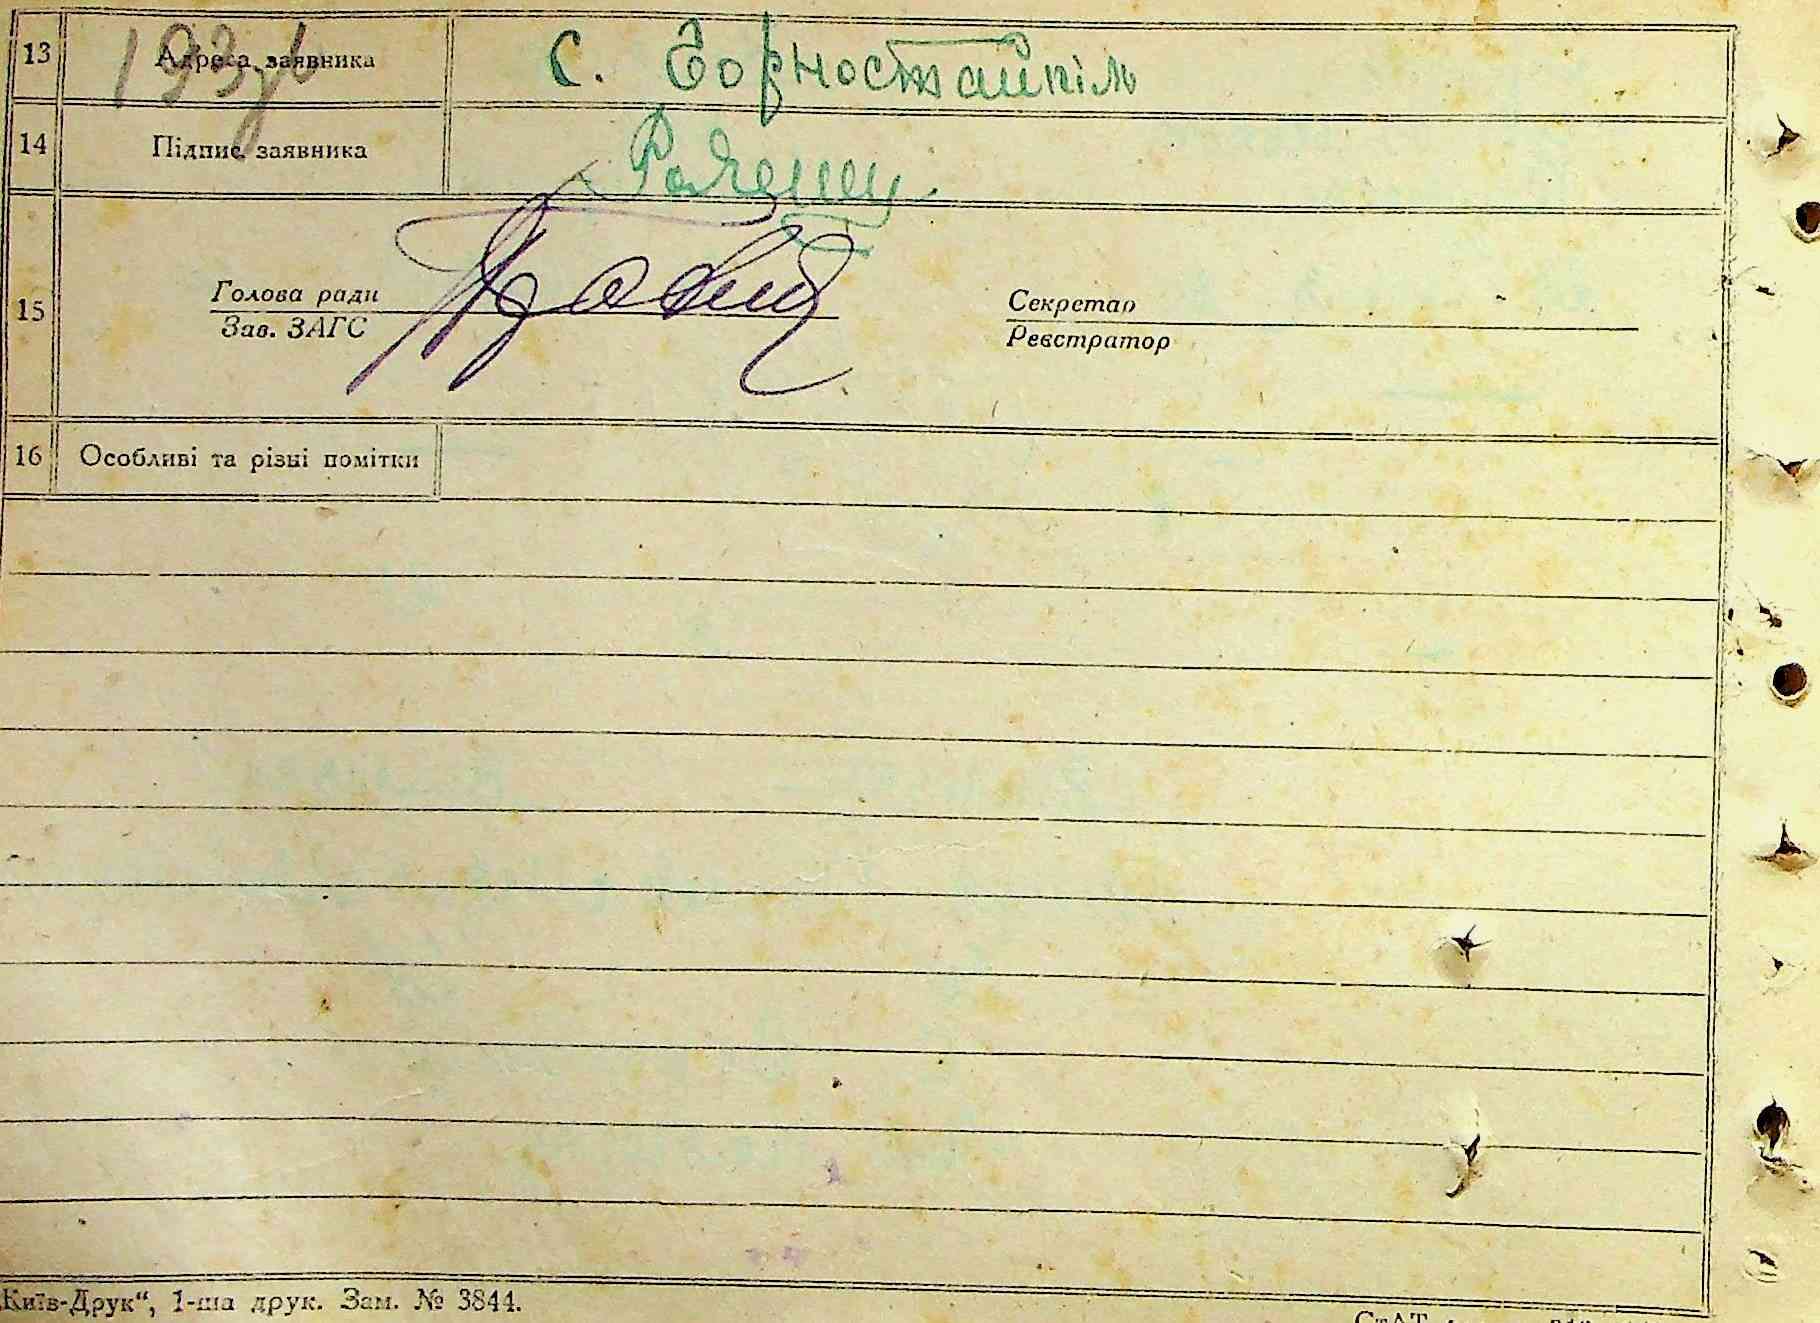 13 Адреса заявника с. Горностайпіль
193зв
14 Підпис заявника
15 Голова ради
Зав. ЗАГС
Секретар
Реєстратор
16 Особливі та різні помітки
„Київ-Друк“, 1-ша друк. Зам. № 3844.